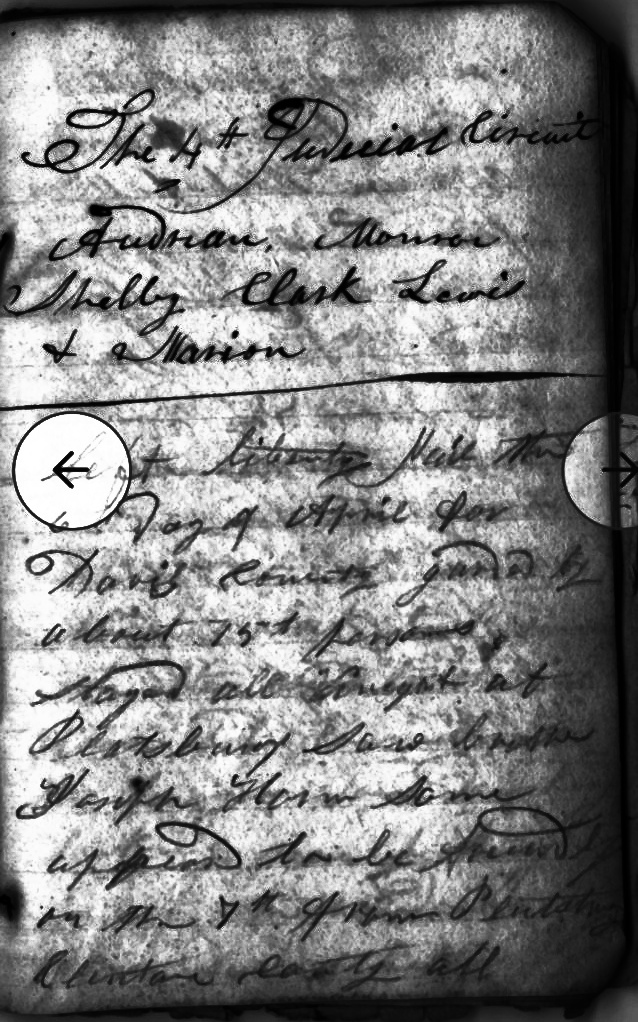 The 4th Judicial Circuit
Audrian, Monroe
Shelby Clark Lewis
& Marion
Liberty Jail the
6 Day of April for
Davis County gard by
about 15 persons,
stayed all knight at
Plattsburg saw brother
Joseph Horn some
appeard to be friendly
on the 7th from Plattsburg
Clinton County all